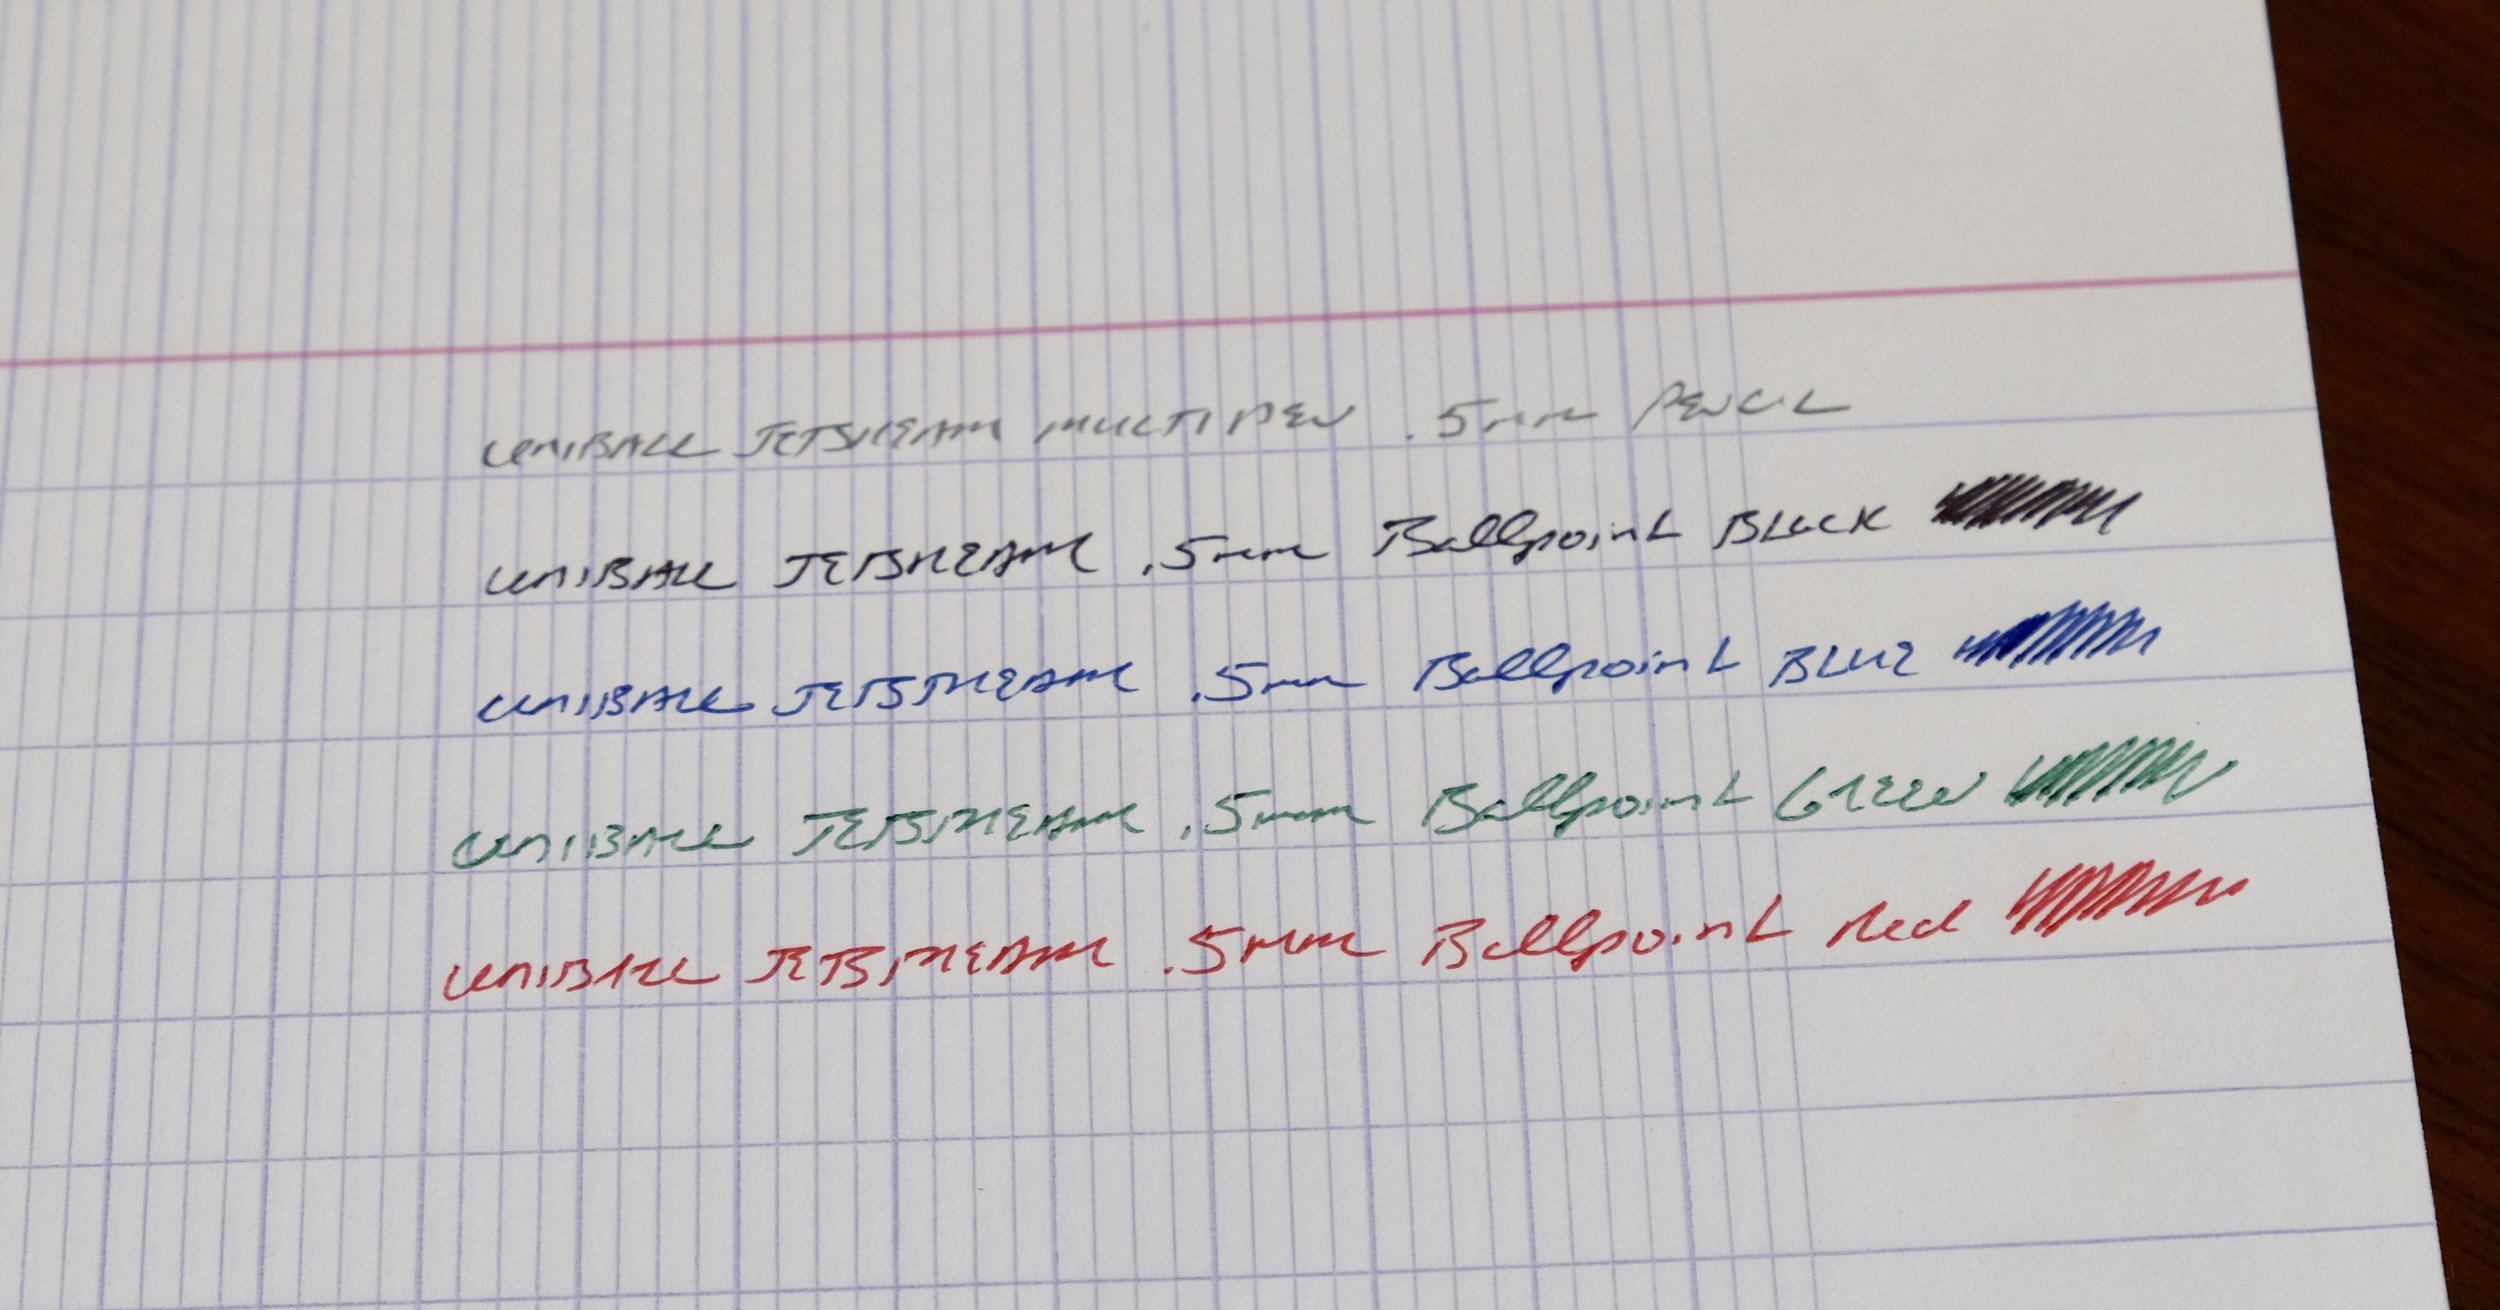 UNIBALL JETSTREAM MULTI PEN .5mm PENCIL
UNIBALL JETSTREAM .5mm Ballpoint BLACK
UNIBALL JETSTREAM .5mm Ballpoint BLUE
UNIBALL JETSTREAM .5mm Ballpoint GREEN
UNIBALL JETSTREAM .5mm Ballpoint Red